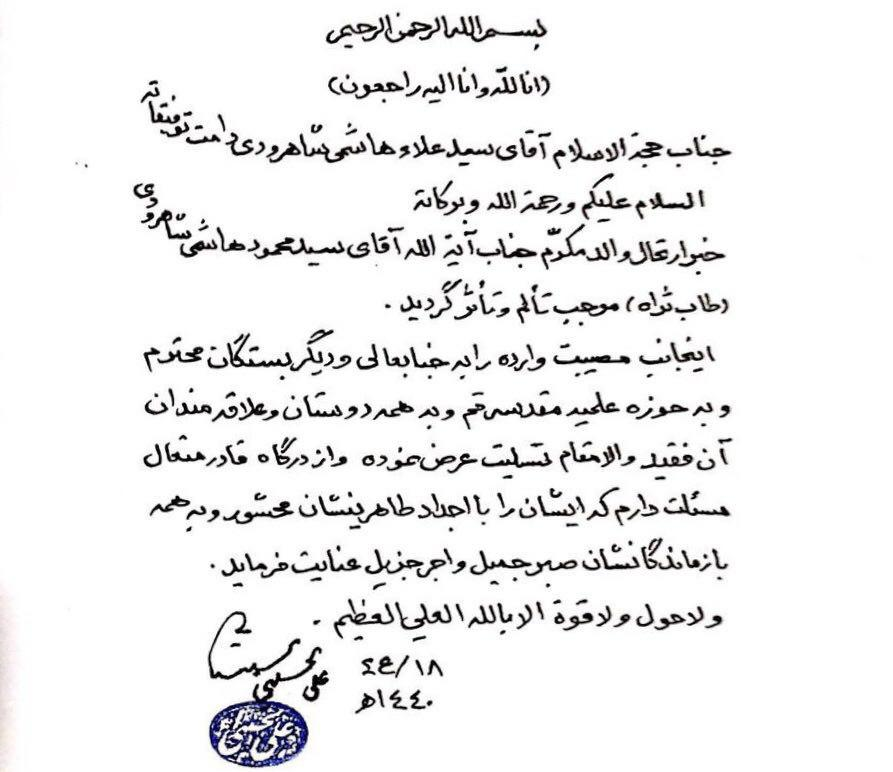 بسم الله الرحمن الرحیم
(انا لله وانا الیه راجعون)
جناب حجة الاسلام آقای سید علاء هاشمی شاهرودی دامت توفیقاته
السلام علیکم ورحمة الله وبرکاته
خبر ارتحال والد مکرّم جناب آیة الله آقای سید محمود هاشمی شاهرودی
(طاب ثراه) موجب تألم وتأثر گردید .
اینجانب مصیبت وارده را به جنابعالی ودیگر بستگان محترم
و به حوزه علمیه مقدسه قم و به همه دوستان وعلاقه مندان
آن فقید والامقام تسلیت عرض نموده واز درگاه قادر متعال
مسئلت دارم که ایشان را با اجداد طاهرینشان محشور و به همه
بازماندگانشان صبر جمیل واجر جزیل عنایت فرماید .
ولا حول ولا قوة الا بالله العلي العظیم .
١٨/ع٢
١٤٤٠هـ
علی الحسینی السیستانی